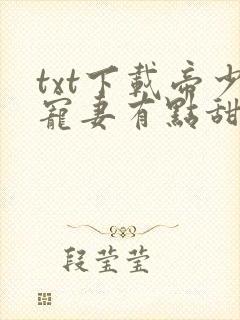 txt下載帝少
寵妻有點甜
段莹莹